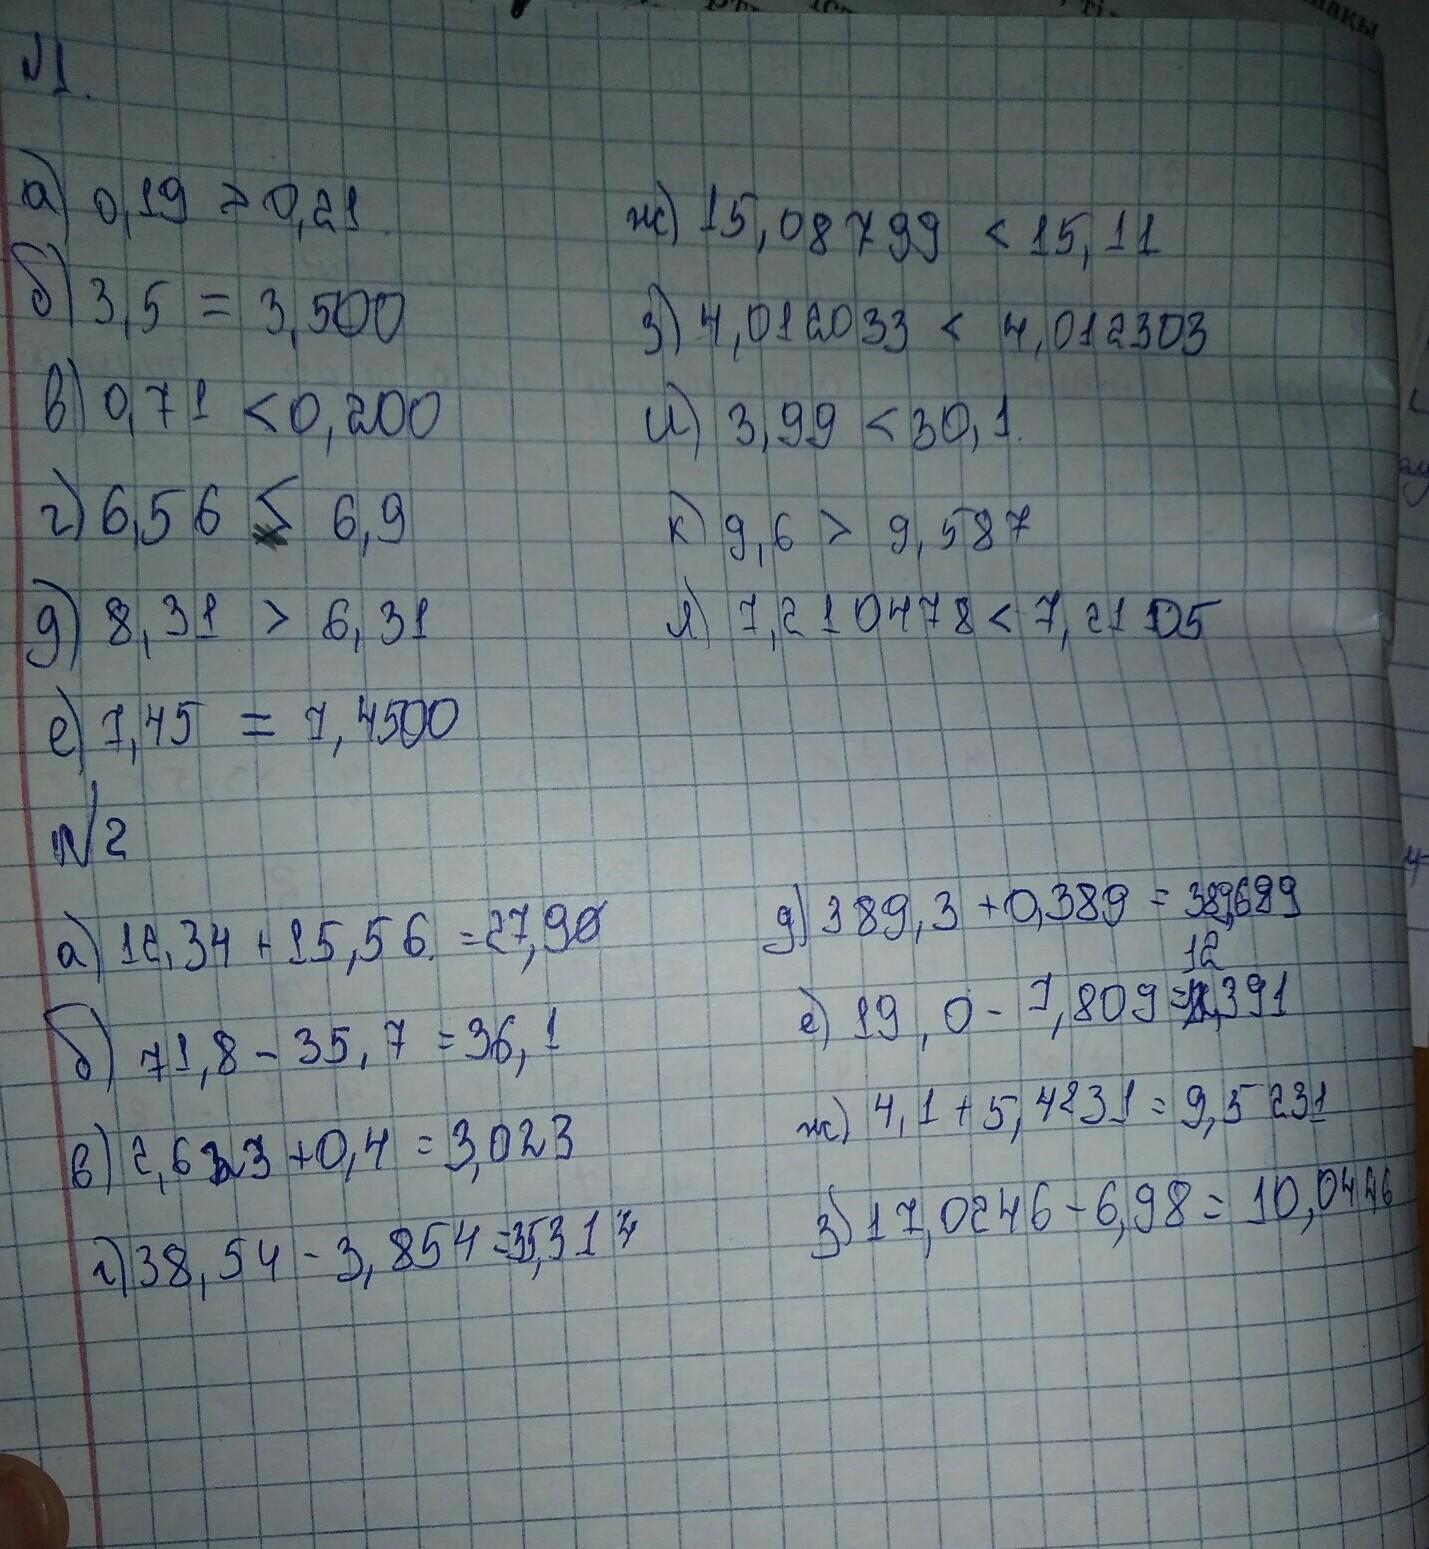 №1.
а) 0,19 > 0,21
б) 3,5 = 3,500
в) 0,71 < 0,200
г) 6,56 < 6,9
д) 8,31 > 6,31
е) 7,45 = 7,4500
ж) 15,08799 < 15,11
з) 4,012033 < 4,012303
и) 3,99 < 30,1.
к) 9,6 > 9,587
л) 7,210478 < 7,21105
№2
а) 12,34 + 15,56. = 27,90
б) 71,8 - 35,7 = 36,1
в) 2,623 + 0,4 = 3,023
г) 38,54 - 3,854 = 35,314
д) 389,3 + 0,389 = 389,689
12
е) 19,0 - 7,809 = ,391
ж) 4,1 + 5,4231 = 9,5231
з) 17,0246 - 6,98 = 10,0446